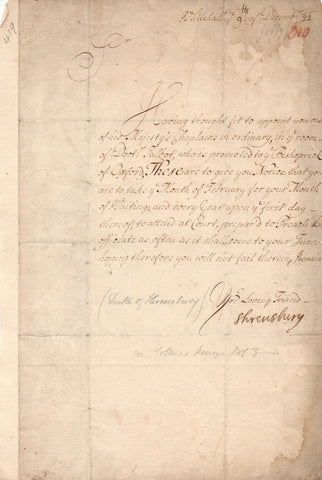 Whitehall yᵉ 9ᵗʰ of Decembʳ
310
Sʳ
Having thought fit to appoint you one
of his Majesty's Chaplains in ordinary, in yᵉ room
of Doctʳ Talbot, who is promoted to yᵉ Bishoprick
of Oxford, These are to give you Notice that you
are to take yᵉ Month of February for your Month
of Waiting; and every Year upon yᵉ first day
thereof, to attend at Court, prepar'd to Preach &
officiate as often as it shall come to your Turn
hoping therefore you will not fail therein, I remain
Yoʳ Loving Friend
(Duke of Shrewsbury)
Shrewsbury